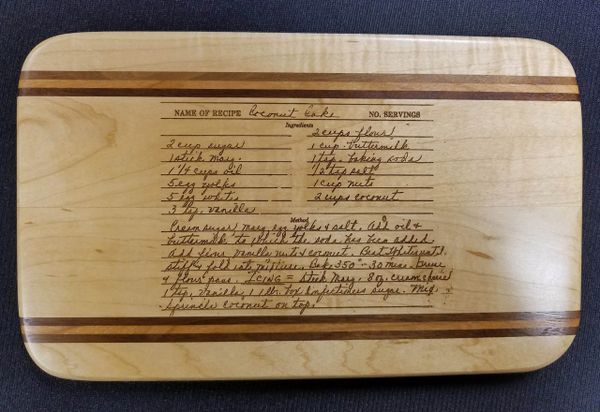 NAME OF RECIPE Coconut Cake NO. SERVINGS
Ingredients
2 cups flour
2 cup sugar 1 cup buttermilk
1 stick marg. 1 tsp. baking soda
1 1/4 cups oil 1/2 tsp salt
5 egg yolks 1 cup nuts
5 egg whites 2 cups coconut
3 tsp. vanilla
Method
Cream sugar, marg, egg yolks & salt. Add oil &
buttermilk to which the soda has been added.
Add flour vanilla nuts & coconut. Beat whites until
stiff & fold into mixture. Bake 350° - 30 mins. Grease
& flour pans. ICING = stick marg. 8 oz. cream cheese
1 tsp. vanilla, 1 lb. box confectioners sugar. Mix
sprinkle coconut on top.